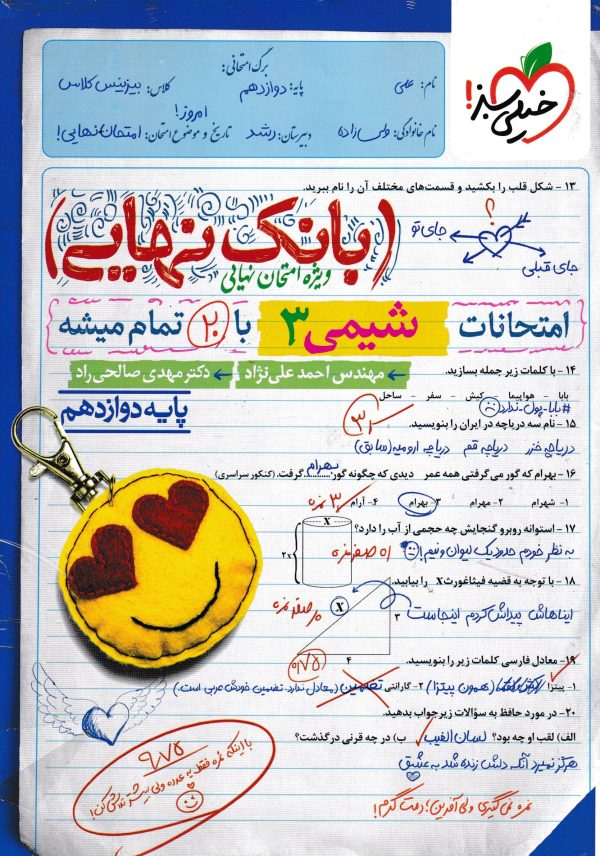 خیلی سبز!
برگ امتحانی:
نام: علی پایه: دوازدهم کلاس: بیزینس کلاس
امروز!
نام خانوادگی: ولی‌زاده دبیرستان: رشد تاریخ و موضوع امتحان: (امتحان نهایی!)
۱۳ - شکل قلب را بکشید و قسمت‌های مختلف آن را نام ببرید.
؟
جای تو
جای قبلی
(بانک نهایی)
ویژه امتحان نهایی
امتحانات شیمی ۳ با ۲۰ تمام میشه
مهندس احمد علی‌نژاد دکتر مهدی صالحی‌راد
پایه دوازدهم
۱۴ - با کلمات زیر جمله بسازید.
بابا - هواپیما - کیش - سفر - ساحل
#بابا-پول-ندارد
۱۵ - نام سه دریاچه در ایران را بنویسید.
دریاچه خزر دریاچه قم دریاچه ارومیه (سابق)
۱۶ - بهرام که گور می‌گرفتی همه عمر دیدی که چگونه گور بهرام گرفت. (کنکور سراسری)
۱- شهرام ۲- مهرام ۳- بهرام ۴- آرام ۳ نمره
۱۷ - استوانه روبرو گنجایش چه حجمی از آب را دارد؟
X
2x
به نظر خودم حدود یک لیوان و نیم!
۱۸ - با توجه به قضیه فیثاغورث X را بیابید.
ایناهاش پیداش کردم اینجاست!
X
۳
۴
۰/۷۵
۱۹ - معادل فارسی کلمات زیر را بنویسید.
۱- پیتزا (همون پیتزا) ۲- گارانتی تضمین (معادل ندارد. تضمین خودش عربی است.)
۲۰ - در مورد حافظ به سؤالات زیر جواب بدهید.
الف) لقب او چه بود؟ لسان الغیب ب) در چه قرنی درگذشت؟
هرگز نمیرد آنکه دلش زنده شد به عشق
نمره نمی‌گیری ولی آفرین! دمت گرم!
۹/۷۵
با اینکه نمره فقط یه عدده ولی بیشتر تلاش کن!